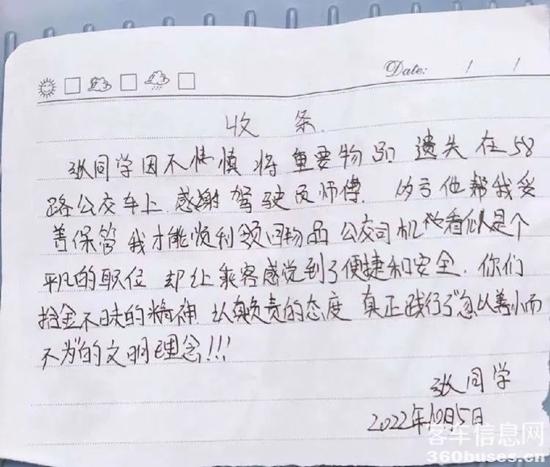 Date: / /
收 条
张同学因不慎慎将重要物品 遗失在58
路公交车上 感谢驾驶员师傅. 内亏他帮我妥
善保管 我才能顺利领回物品 公交司机他看似是个
平凡的职位 却让乘客感觉到了便捷和安全. 你们
拾金不昧的精神. 认真负责的态度 真正践行了"忽以善小而
不为"的文明理念!!!
张同学
2022年10月5日
客车信息网
360buses.cn